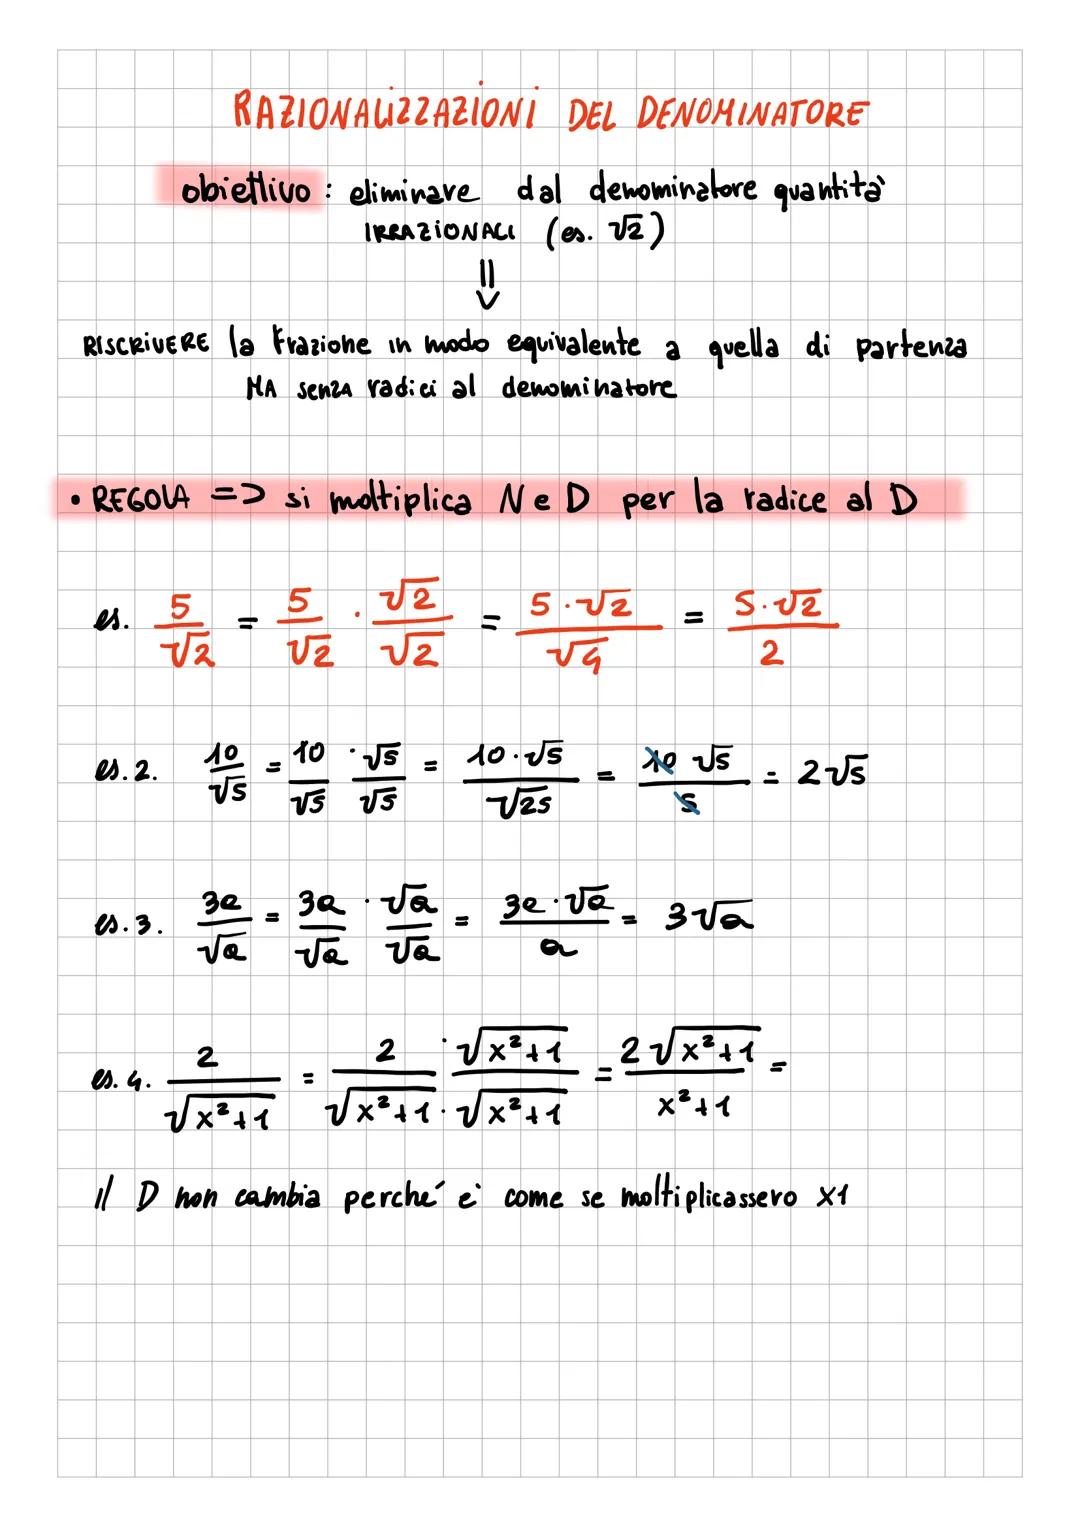 RAZIONALIZZAZIONI DEL DENOMINATORE
obiettivo : eliminare dal denominatore quantità
IRRAZIONALI (es. √2)
⇓
RISCRIVERE la frazione in modo equivalente a quella di partenza
MA senza radici al denominatore
• REGOLA => si moltiplica N e D per la radice al D
es. 5/√2 = 5/√2 · √2/√2 = 5·√2/√4 = 5·√2/2
es. 2. 10/√5 = 10/√5 · √5/√5 = 10·√5/√25 = 10√5/5 = 2√5
es. 3. 3a/√a = 3a/√a · √a/√a = 3a·√a/a = 3√a
es. 4. 2/√x²+1 = 2/√x²+1 · √x²+1/√x²+1 = 2√x²+1/x²+1 =
il D non cambia perché è come se moltiplicassero x1